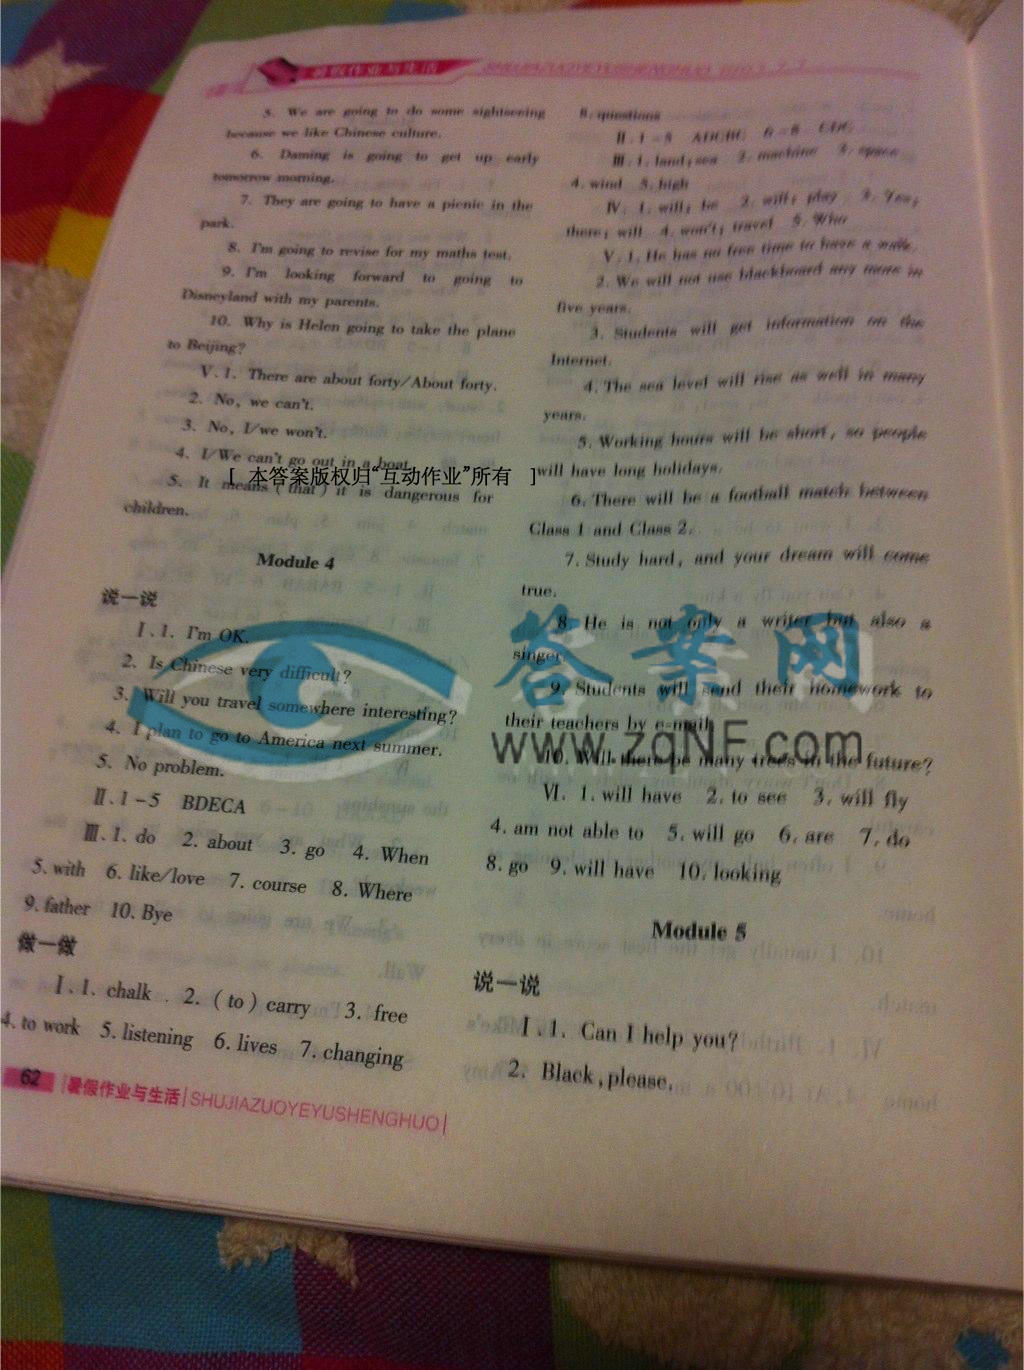 暑假作业与生活
5. We are going to do some sightseeing
because we like Chinese culture.
6. Daming is going to get up early
tomorrow morning.
7. They are going to have a picnic in the
park.
8. I'm going to revise for my maths test.
9. I'm looking forward to going to
Disneyland with my parents.
10. Why is Helen going to take the plane
to Beijing?
Ⅴ. 1. There are about forty/About forty.
2. No, we can't.
3. No, I/we won't.
4. I/We can't go out in a boat.
[ 本答案版权归“互动作业”所有 ]
5. It means (that) it is dangerous for
children.
Module 4
说一说
Ⅰ. 1. I'm OK.
2. Is Chinese very difficult?
3. Will you travel somewhere interesting?
4. I plan to go to America next summer.
5. No problem.
Ⅱ. 1-5 BDECA
Ⅲ. 1. do 2. about 3. go 4. When
5. with 6. like/love 7. course 8. Where
9. father 10. Bye
做一做
Ⅰ. 1. chalk 2. (to) carry 3. free
4. to work 5. listening 6. lives 7. changing
8. questions
Ⅱ. 1-5 ADCBC 6-8
Ⅲ. 1. land; sea 2. machine 3. space
4. wind 5. high
Ⅳ. 1. will; be 2. will; play 3. Yes;
there; will 4. won't; travel 5. Who
Ⅴ. 1. He has no free time to have a walk.
2. We will not use blackboard any more in
five years.
3. Students will get information on the
Internet.
4. The sea level will rise as well in many
years.
5. Working hours will be short, so people
will have long holidays.
6. There will be a football match between
Class 1 and Class 2.
7. Study hard, and your dream will come
true.
8. He is not only a writer but also a
singer.
9. Students will send their homework to
their teachers by e-mail.
10. Will there be many trees in the future?
Ⅵ. 1. will have 2. to see 3. will fly
4. am not able to 5. will go 6. are 7. do
8. go 9. will have 10. looking
Module 5
说一说
Ⅰ. 1. Can I help you?
2. Black, please.
答案网
www.zqNF.com
62 暑假作业与生活|SHUJIAZUOYEYUSHENGHUO|